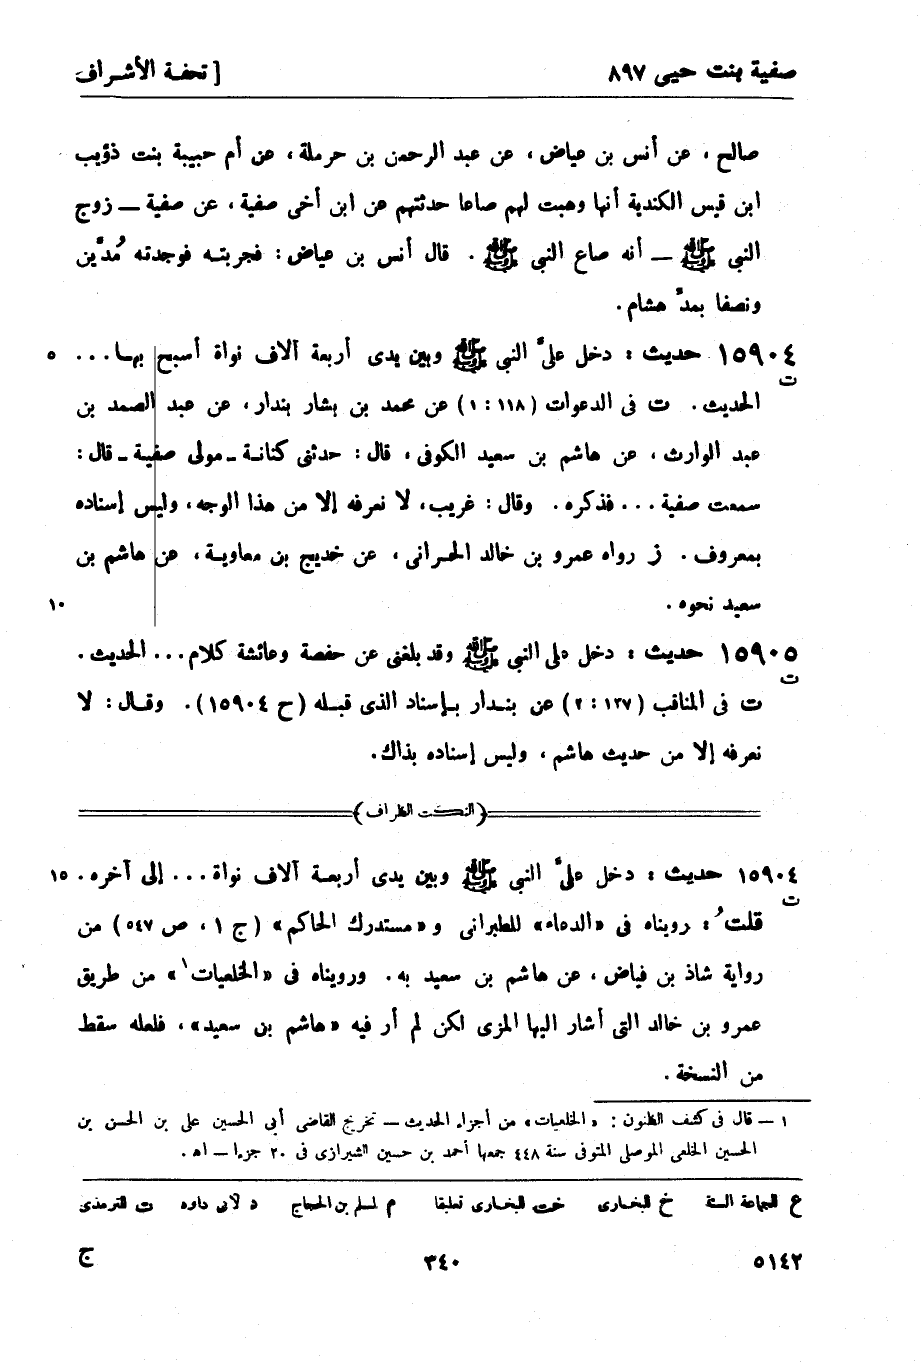 صفية بنت حيى ٨٩٧
[ تحفة الأشراف
صالح ، عن أنس بن عياض ، عن عبد الرحمن بن حرملة ، عن أم حبيبة بنت ذؤيب
ابن قيس الكندية أنها وهبت لهم صاعا حدثتهم عن ابن أخى صفية ، عن صفية ــ زوج
النبى ﷺ ــ أنه صاع النبى ﷺ . قال أنس بن عياض : فجربتـه فوجدته مُدَّين
ونصفا بمدّ هشام .
١٥٩٠٤ حديث : دخل علىَّ النبى ﷺ وبين يدى أربعة آلاف نواة أسبح بهـا ... ٥
ت
الحديث . ت فى الدعوات (١١٨ : ١) عن محمد بن بشار بندار ، عن عبد الصمد بن
عبد الوارث ، عن هاشم بن سعيد الكوفى ، قال : حدثنى كنانـة ـ مولى صفية ـ قال :
سمعت صفية ... فذكره . وقال : غريب ، لا نعرفه إلا من هذا الوجه ، وليس إسناده
بمعروف . ز رواه عمرو بن خالد الحرانى ، عن خديج بن معاويـة ، عن هاشم بن
سعيد نحوه . ١٠
١٥٩٠٥ حديث : دخل على النبى ﷺ وقد بلغنى عن حفصة وعائشة كلام ... الحديث .
ت
ت فى المناقب (١٣٧ : ٢) عن بنـدار بـإسناد الذى قبـله (ح ١٥٩٠٤) . وقـال : لا
نعرفه إلا من حديث هاشم ، وليس إسناده بذاك .
(النكت الظراف)
١٥٩٠٤ حديث : دخل علىَّ النبى ﷺ وبين يدى أربعـة آلاف نواة ... إلى آخره . ١٥
ت
قلتُ : رويناه فى «الدعاء» للطبرانى و«مستدرك الحاكم» (ج ١ ، ص ٥٤٧) من
رواية شاذ بن فياض ، عن هاشم بن سعيد به . ورويناه فى «الخلعيات¹» من طريق
عمرو بن خالد التى أشار اليها المزى لكن لم أر فيه «هاشم بن سعيد» ، فلعله سقط
من النسخة .
١ ــ قال فى كشف الظنون : «الخلعيات» من أجزاء الحديث ــ تخريج القاضى أبى الحسين على بن الحسن بن
الحسين الخلعى الموصلى المتوفى سنة ٤٤٨ جمعها أحمد بن حسين الشيرازى فى ٢٠ جزءا ــ اهـ .
ع للجماعة الستة خ للبخارى خت للبخارى تعليقا م لمسلم بن الحجاج د لابى داود ت للترمذى
٥١٤٢ ٣٤٠ ج